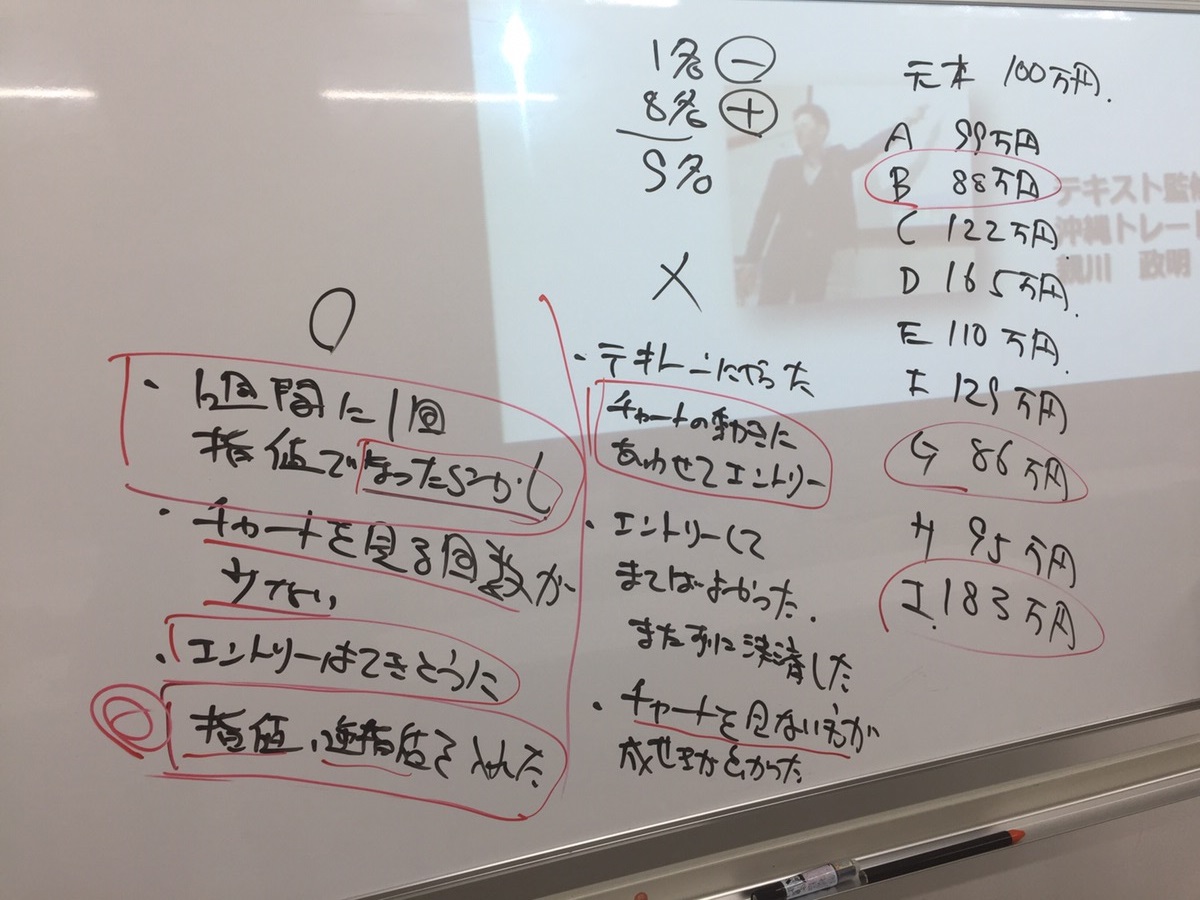 1名 ⊖
8名 ⊕
9名
元本 100万円.
A 99万円
B 88万円
C 122万円.
D 165万円.
E 110万円.
129万円
G 86万円
H 95万円
I. 183万円
テキスト監修
沖縄トレード
親川 政明
○
・1週間に1回
指値で
・チャートを見る回数が
少ない
・エントリーはてきとうに
指値、逆指値を入れた
×
・テキトーにやった
チャートの動きに
あわせてエントリー
・エントリーして
まてばよかった.
またずに決済した
・チャートを見ない方が
成せきがよかった